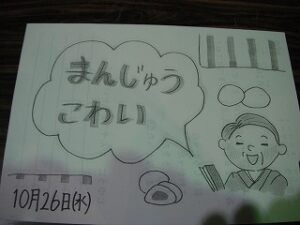 まんじゅう
こわい
10月26日(水)